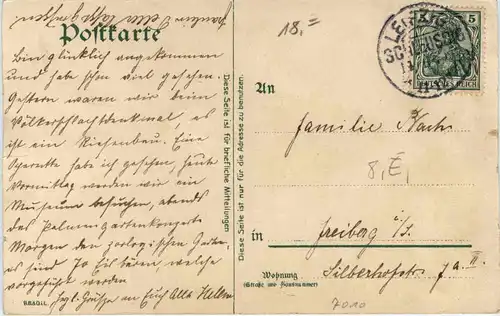 Postkarte
18,=
LEIPZIG
5
DEUTSCHES REICH
Bin glücklich angekommen
und habe schon viel gesehen.
Gestern waren wir beim
Völkerschlachtdenkmal, es
ist ein Riesenbau. Eine
Operette habe ich gesehen, heute
Vormittag werden wir ein
Museum besuchen, abends
das Palmengartenkonzert
Morgen den zoologischen Garten
es sind 70 Eisbären welche
vorgeführt werden
Herzl. Grüße an Euch Alle Helene
BRAGIL
Diese Seite ist für briefliche Mitteilungen
Diese Seite ist nur für die Adresse zu benutzen.
An
Familie Nachs
8,E,
in
Freiberg i/S.
Wohnung
(Straße und Hausnummer)
Silberhofstr.
7010